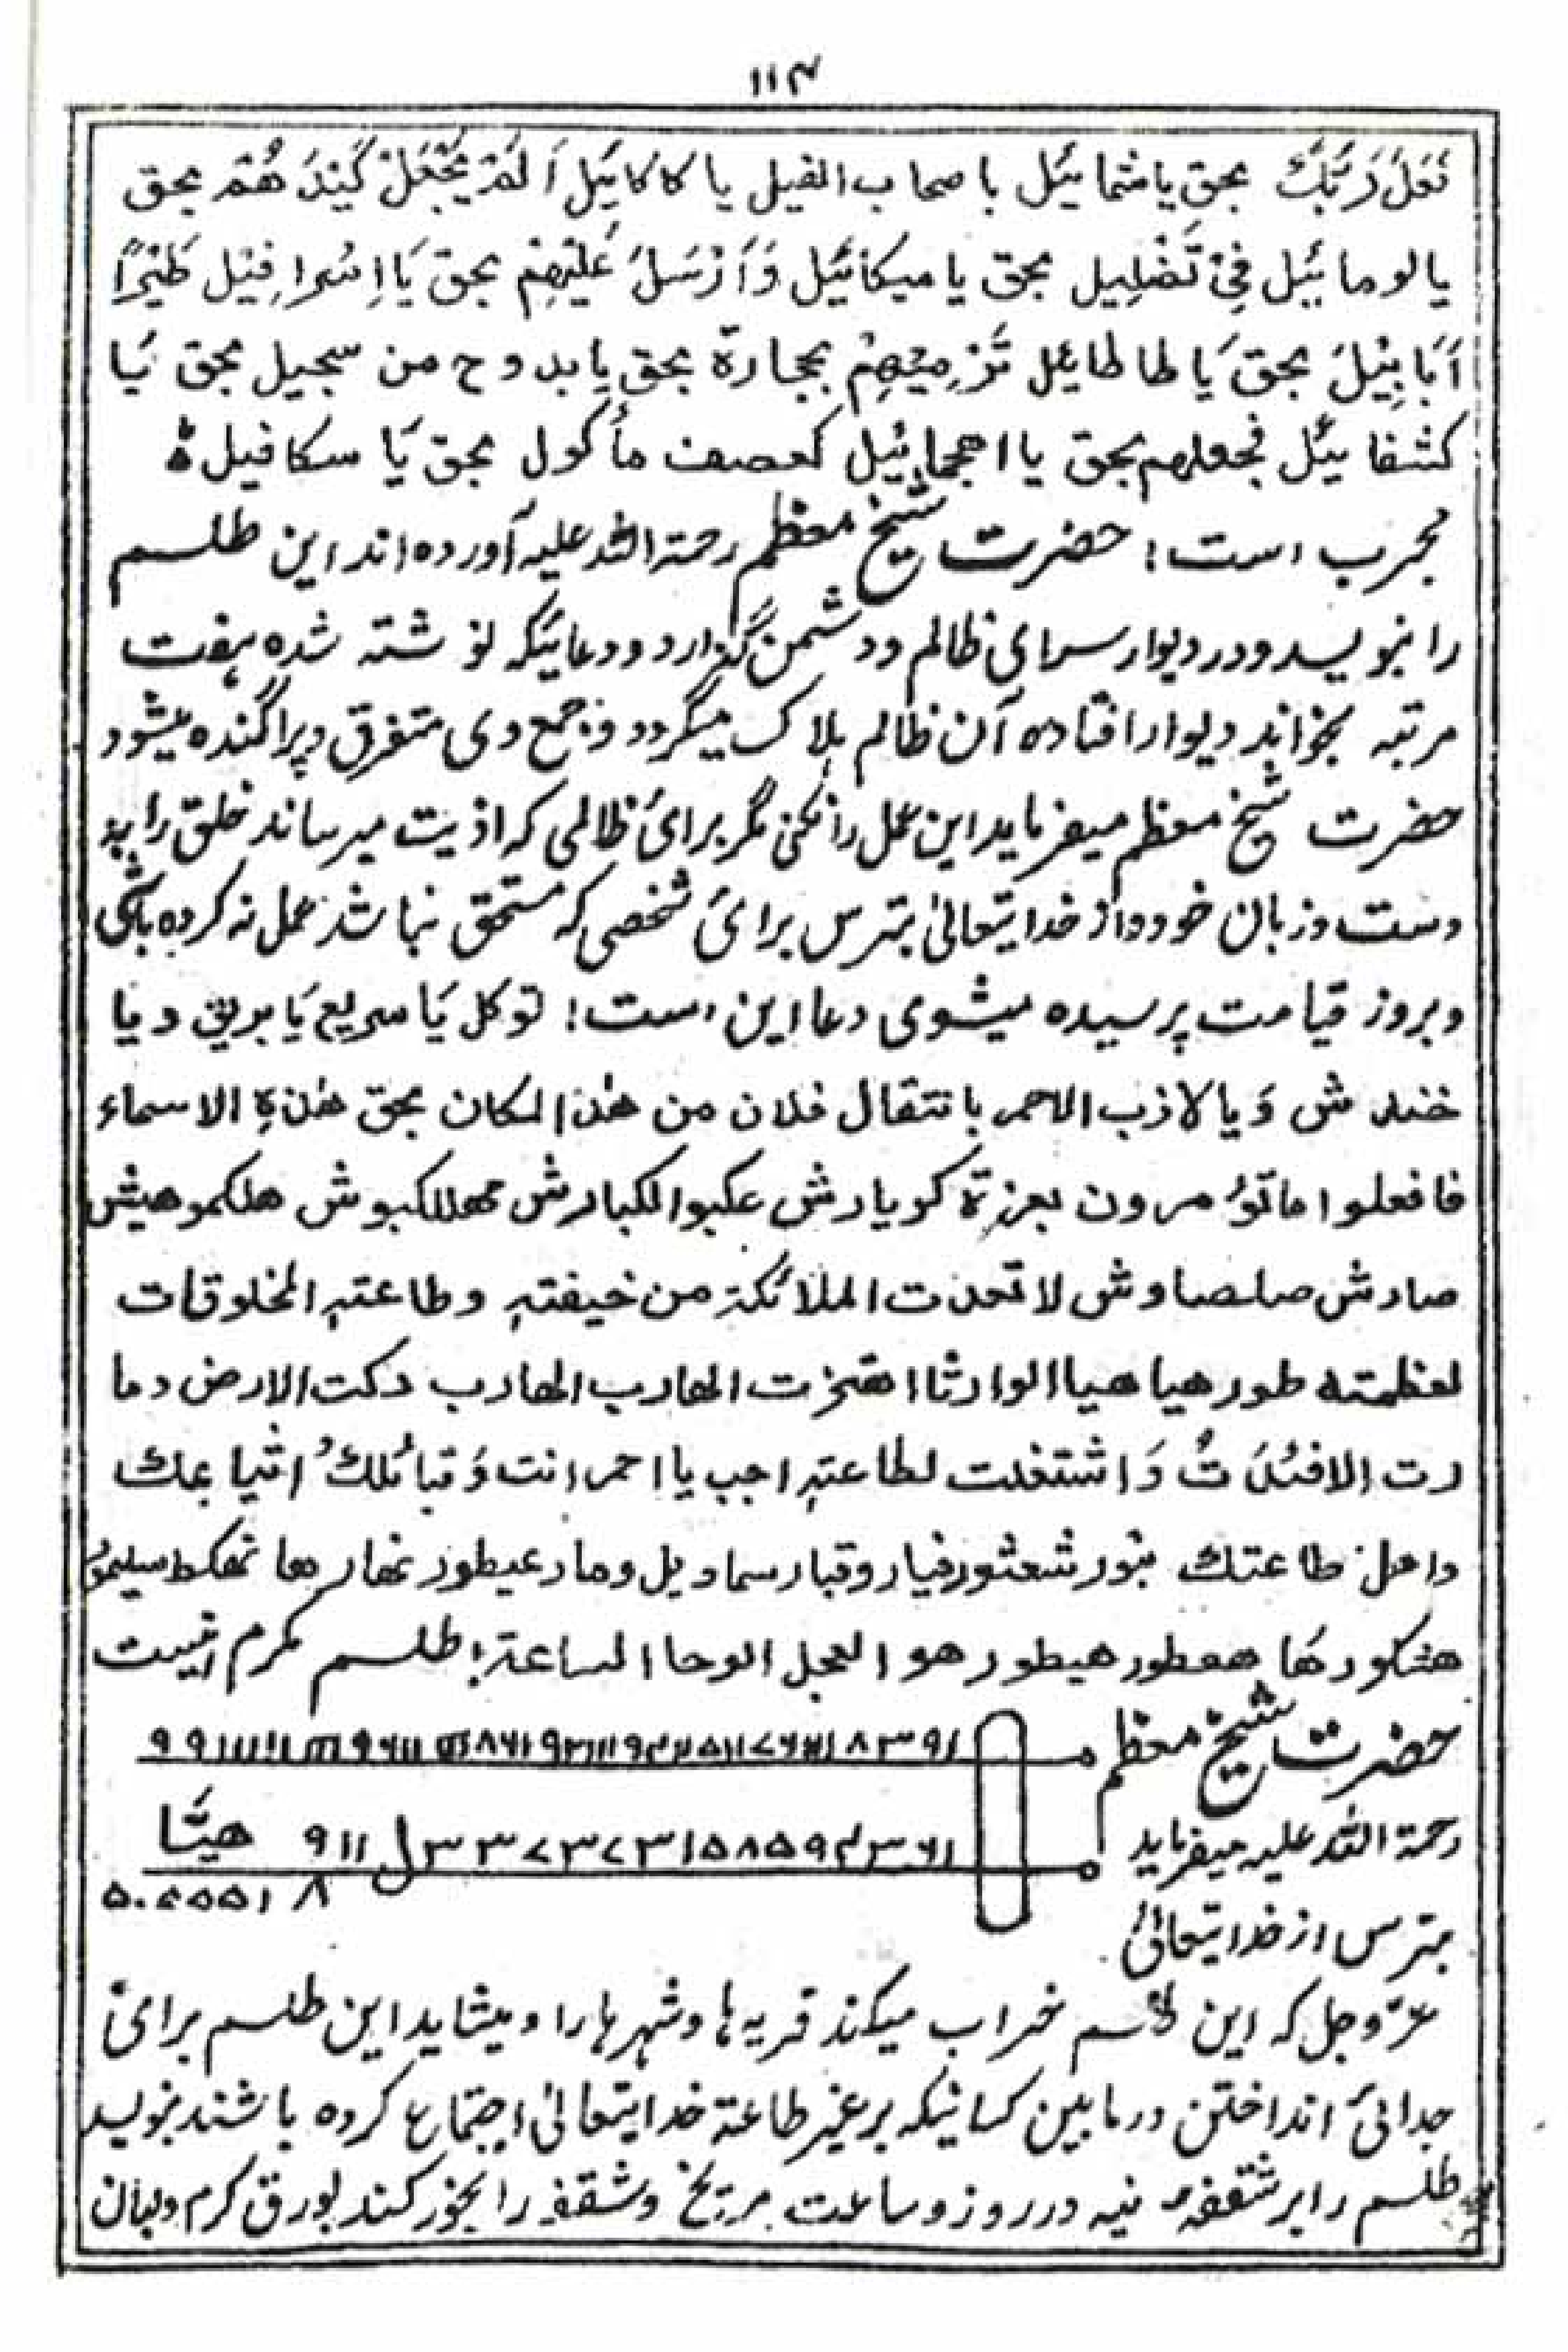 ۱۱۴
فَعَلَ رَبُّكَ بحق یا شمائیل باصحاب الفیل یا کاکائیل اَلَمْ یَجْعَلْ کَیْدَ هُمْ بحق
یا لومائیل فِیْ تَضْلِیل بحق یا میکائیل وَاَرْسَلَ عَلَیْهِمْ بحق یَا اِسْرافِیْل طَیْرًا
اَبَابِیْلَ بحق یَا طاطائیل تَرْمِیْهِمْ بحجارة بحق یا بدوح من سجیل بحق یَا
کشفائیل فجعلهم بحق یا اهجمائیل کعصف مأکول بحق یَا سکافیل ۵
مجرب است؛ حضرت شیخ معظم رحمۃ اللہ علیہ آورده اند این طلسم
را بنویسد و در دیوار سرای ظالم و دشمن گذارد و دعائیکہ نوشتہ شدہ ہفت
مرتبہ بخواند دیوار افتادہ آن ظالم ہلاک میگردد و جمع وی متفرق و پراگندہ میشود
حضرت شیخ معظم میفرماید این عمل را نکنی مگر برائ ظالمی کہ اذیت میرساند خلق را بہ
دست و زبان خود و از خدایتعالیٰ بترس برائ شخصی کہ مستحق نباشد عمل نہ کردہ باشی
و بروز قیامت پرسیدہ میشوی دعا این است؛ توکل یَا سریع یَا بریق و یا
خندش وَ یا لازب الاحمر بانتقال فلان من هذا المکان بحق هذہ الاسماء
فافعلوا ما تؤمرون بعزة کویارش عکبوا لکبارش مهللکبوش هلکموهیش
صارش صلصاوش لا تحدت الملائکۃ من خیفتہ وطاعتہ المخلوقات
لعظمتہ طورهیا هیا الوارثا اهتزت الهارب الهارب دکت الارض دما
رت الافئدَ تُ وَ اشتغلت لطاعتہ اجب یا احمر انت وَ قبائلكُ اتباعك
واهل طاعتك بنور شعشور فیاروقبار سماویل ومارعیطور
هشکورها همطور هیطور هو العجل الوحا الساعۃ؛ طلسم مکرم اینست
حضرت شیخ معظم
رحمۃ اللہ علیہ میفرماید
هیًّا
بترس از خدایتعالیٰ
عزّوجل کہ این طلسم خراب میکند قریہ ہا و شہر ہا را و میشاید این طلسم برائ
جدائ انداختن درمابین کسانیکہ بر غیر طاعۃ خدایتعالیٰ اجتماع کردہ باشند بنویسد
طلسم را بر شقفہ نیہ در روز و ساعت مریخ و شقفہ را بخور کند بورق کرم ولبان